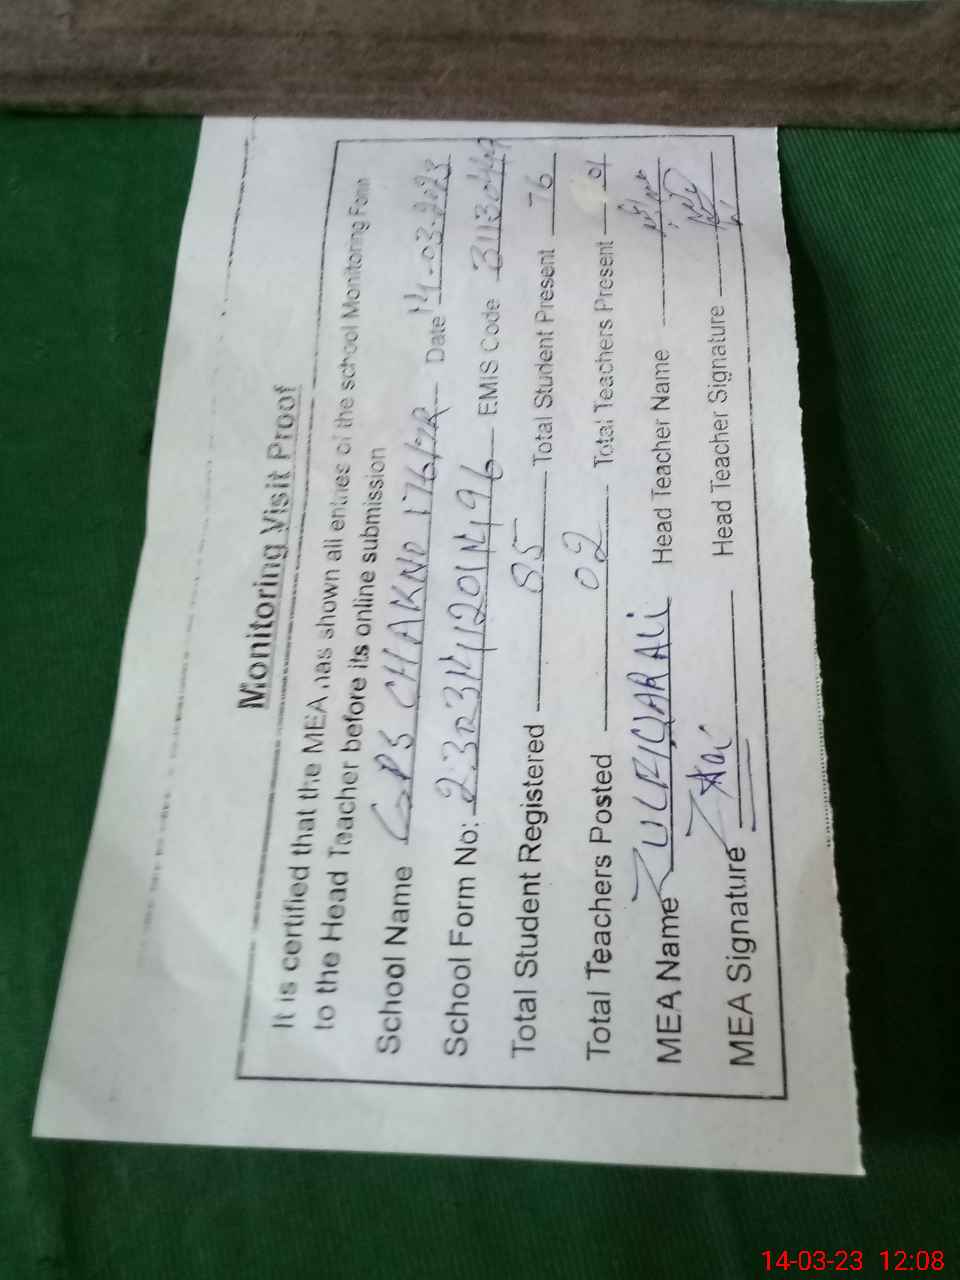 Monitoring Visit Proof
It is certified that the MEA has shown all entries of the school Monitoring Form
to the Head Teacher before its online submission
School Name GPS CHAKNO 176/7R Date 14-03-2023
School Form No: EMIS Code
Total Student Registered 85 Total Student Present 76
Total Teachers Posted 02 Total Teachers Present 01
MEA Name ZULFIQAR ALI Head Teacher Name
MEA Signature Head Teacher Signature
14-03-23 12:08